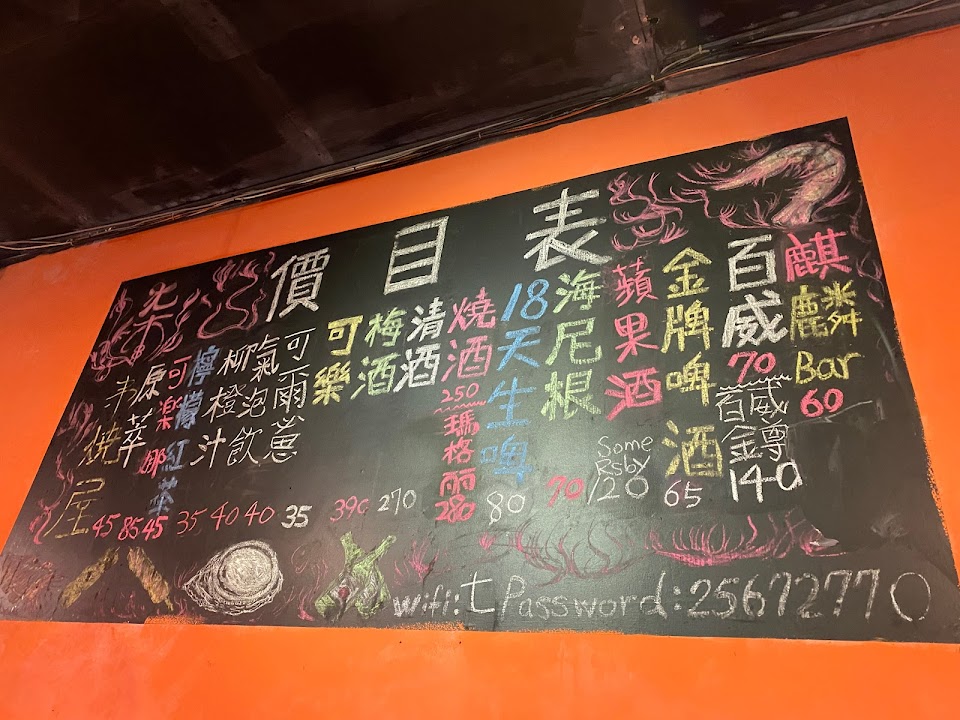 價目表
麒麟Bar 60
百威 70
百威金鐏 140
金牌啤酒 65
蘋果酒
Some
Rsby
120
海尼根 70
18天生啤 80
燒酒 250
瑪格雨 280
清酒 270
梅酒 390
可樂
35
氣泡飲 40
柳橙汁 40
檸檬紅茶 35
可樂 45
原萃 85
45
燒屋
wifi:t Password:25672770